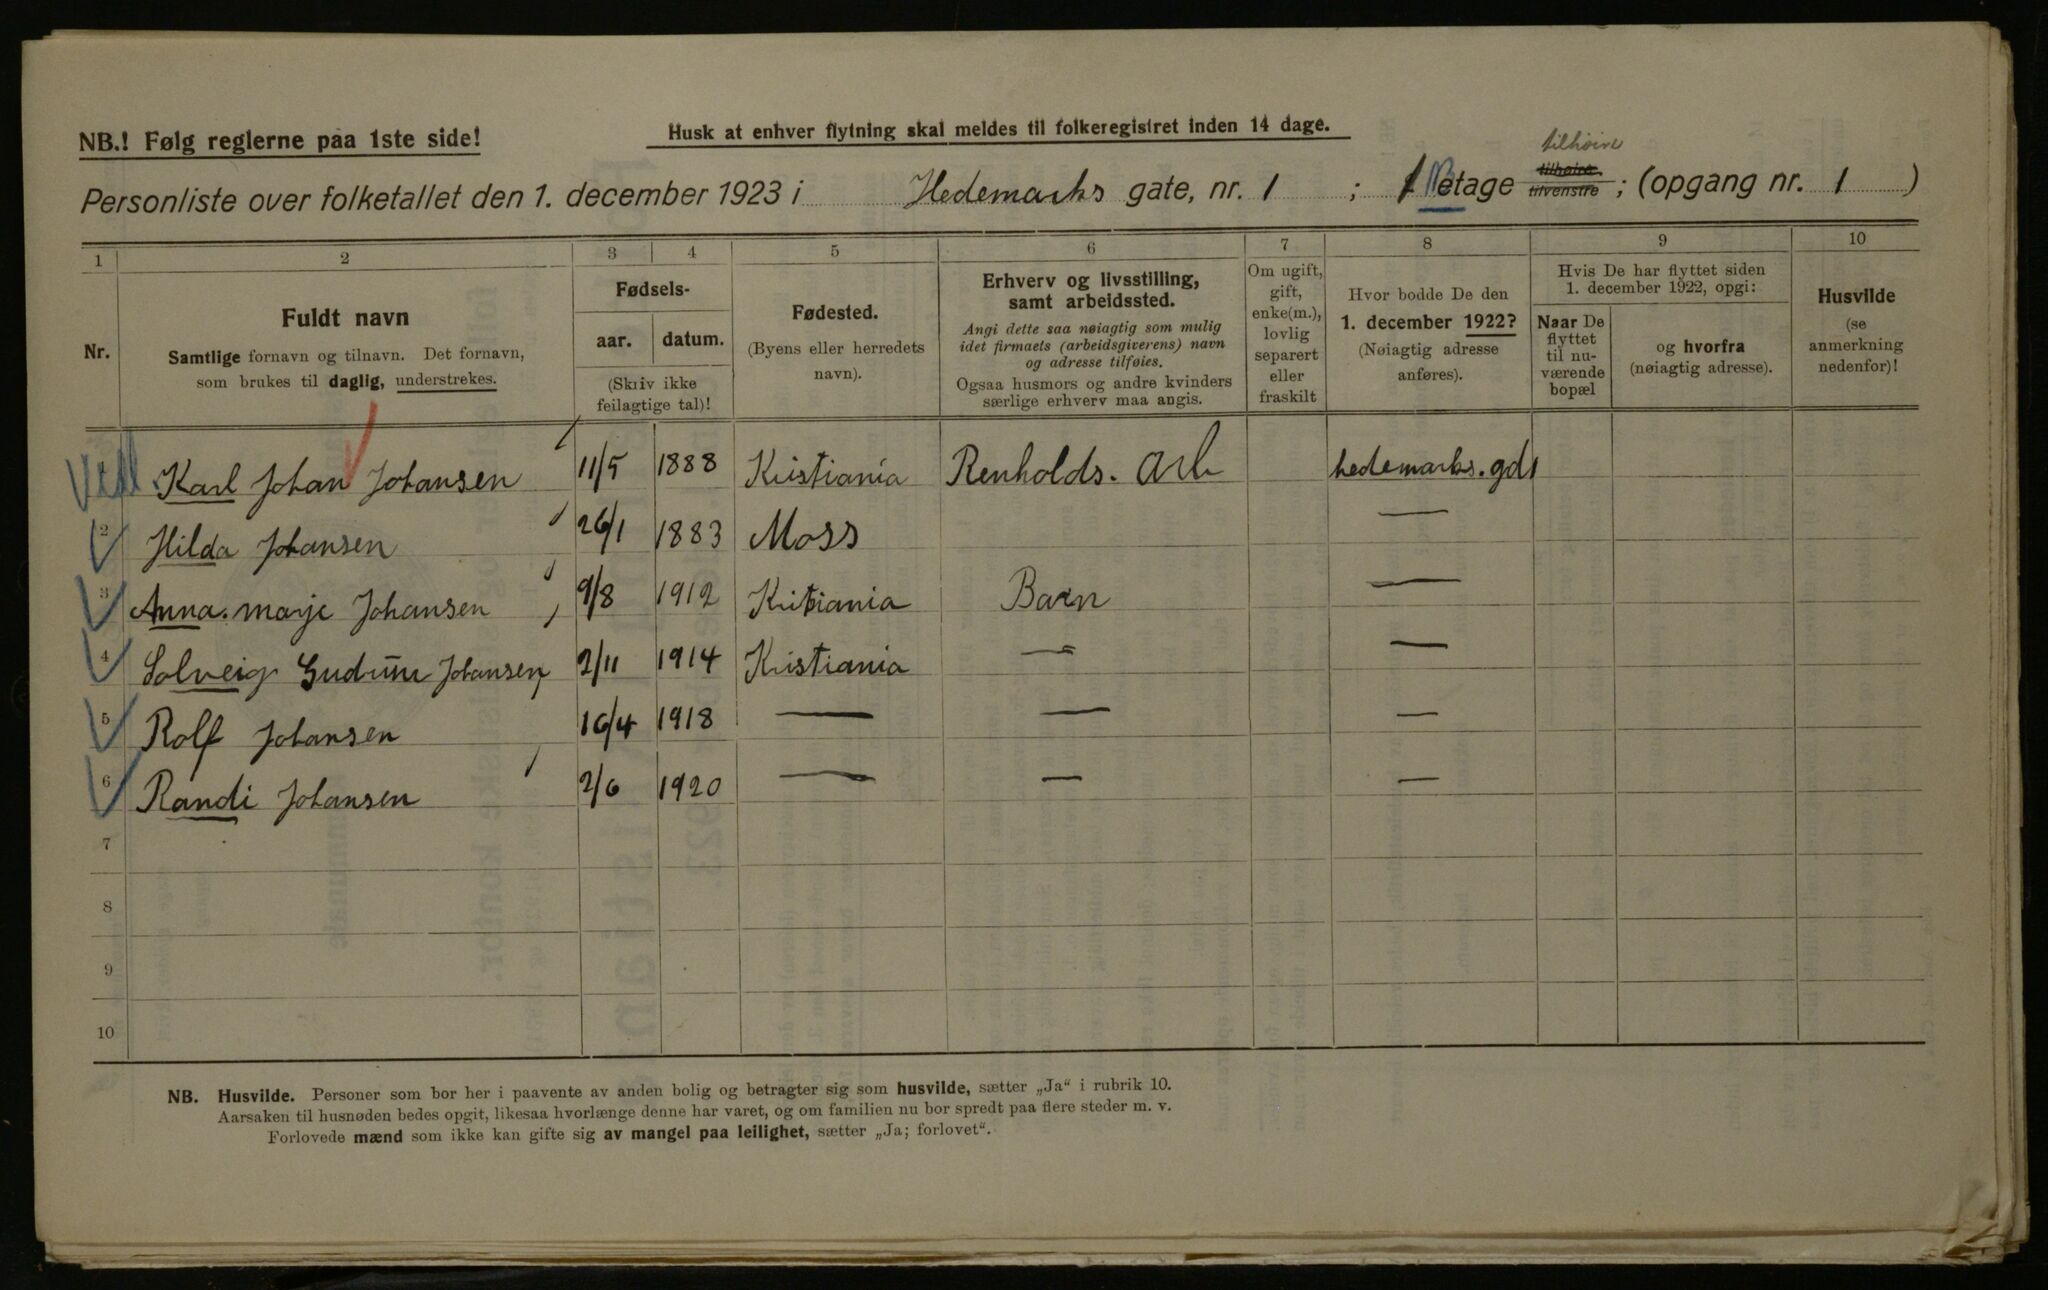 NB.! Følg reglerne paa 1ste side!
Husk at enhver flytning skal meldes til folkeregistret inden 14 dage.
tilhøire
Personliste over folketallet den 1. december 1923 i Hedemarks gate, nr. 1 ; 1 etage tilhøire. tilvenstre ; (opgang nr. 1 )
1 2 3 4 5 6 7 8 9 10
Nr.
Fuldt navn
Samtlige fornavn og tilnavn. Det fornavn,
som brukes til daglig, understrekes.
Fødsels-
aar. datum.
(Skriv ikke
feilagtige tal)!
Fødested.
(Byens eller herredets
navn).
Erhverv og livsstilling,
samt arbeidssted.
Angi dette saa nøiagtig som mulig
idet firmaets (arbeidsgiverens) navn
og adresse tilføies.
Ogsaa husmors og andre kvinders
særlige erhverv maa angis.
Om ugift,
gift,
enke(m.),
lovlig
separert
eller
fraskilt
Hvor bodde De den
1. december 1922?
(Nøiagtig adresse
anføres).
Hvis De har flyttet siden
1. december 1922, opgi:
Naar De
flyttet
til nu-
værende
bopæl
og hvorfra
(nøiagtig adresse).
Husvilde
(se
anmerkning
nedenfor)!
Karl Johan Johansen 11/5 1888 Kristiania Renholds. Arb hedemarks. gd 1
2 Hilda Johansen 26/1 1883 Moss —
3 Anna. marje Johansen 9/8 1912 Kritiania Barn —
4 Solveig Gudrun Johansen 2/11 1914 Kristiania — —
5 Rolf Johansen 16/4 1918 — — —
6 Randi Johansen 2/6 1920 — — —
7
8
9
10
NB. Husvilde. Personer som bor her i paavente av anden bolig og betragter sig som husvilde, sætter „Ja“ i rubrik 10.
Aarsaken til husnøden bedes opgit, likesaa hvorlænge denne har varet, og om familien nu bor spredt paa flere steder m. v.
Forlovede mænd som ikke kan gifte sig av mangel paa leilighet, sætter „Ja; forlovet“.